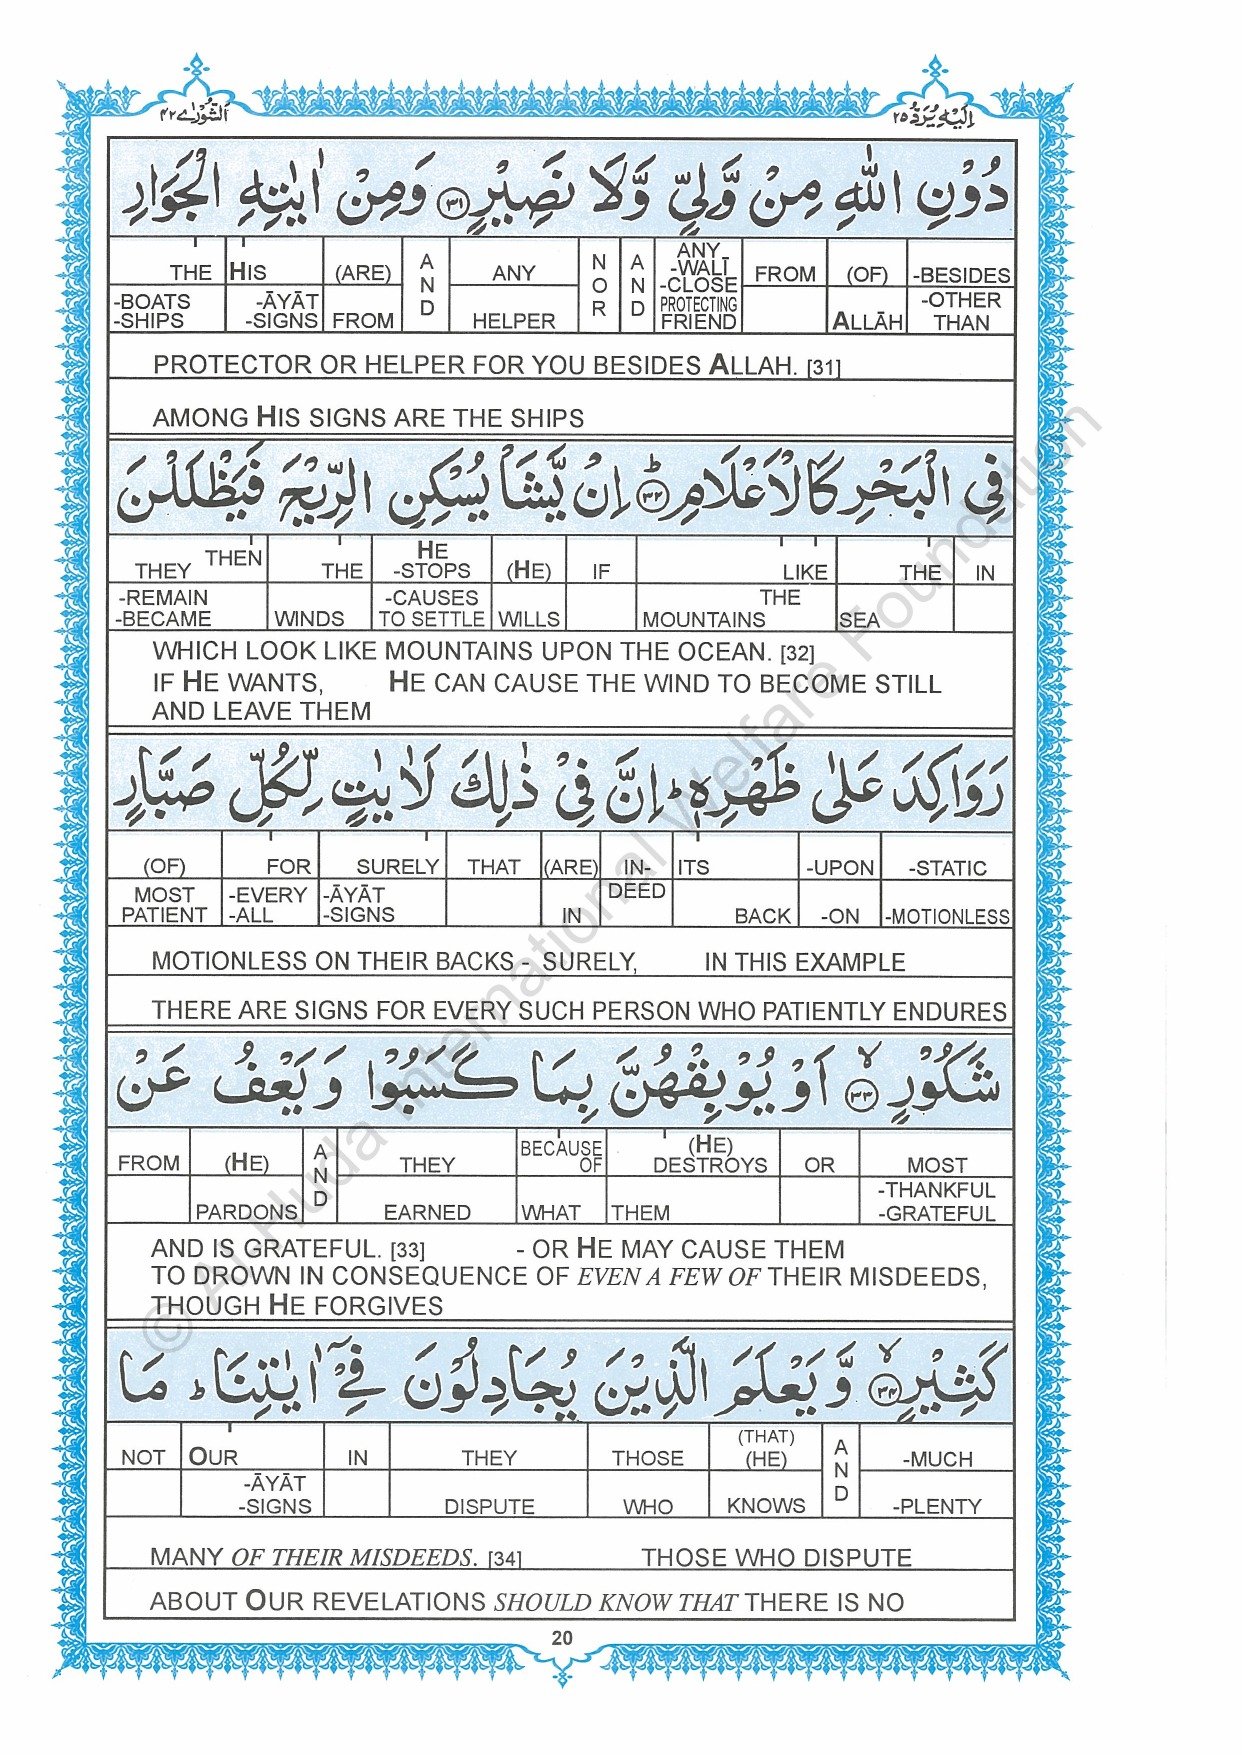 الشورى ٤٢
اليه يرد ٢٥
دُوْنِ اللّٰهِ مِنْ وَّلِيٍّ وَّلَا نَصِيْرٍ ﴿٣١﴾ وَمِنْ اٰيٰتِهِ الْجَوَارِ
THE HIS (ARE) AND ANY NOR AND ANY -WALĪ -CLOSE PROTECTING FRIEND FROM (OF) -BESIDES
-BOATS -SHIPS -ĀYĀT -SIGNS FROM HELPER ALLĀH -OTHER THAN
PROTECTOR OR HELPER FOR YOU BESIDES ALLAH. [31]
AMONG HIS SIGNS ARE THE SHIPS
فِي الْبَحْرِ كَالْاَعْلَامِ ﴿٣٢﴾ؕ اِنْ يَّشَاْ يُسْكِنِ الرِّيْحَ فَيَظْلَلْنَ
THEY THEN THE HE -STOPS (HE) IF LIKE THE IN
-REMAIN -BECAME WINDS -CAUSES TO SETTLE WILLS THE MOUNTAINS SEA
WHICH LOOK LIKE MOUNTAINS UPON THE OCEAN. [32]
IF HE WANTS, HE CAN CAUSE THE WIND TO BECOME STILL
AND LEAVE THEM
رَوَاكِدَ عَلٰى ظَهْرِهٖ ؕ اِنَّ فِيْ ذٰلِكَ لَاٰيٰتٍ لِّكُلِّ صَبَّارٍ
(OF) FOR SURELY THAT (ARE) IN- ITS -UPON -STATIC
MOST PATIENT -EVERY -ALL -ĀYĀT -SIGNS IN DEED BACK -ON -MOTIONLESS
MOTIONLESS ON THEIR BACKS - SURELY, IN THIS EXAMPLE
THERE ARE SIGNS FOR EVERY SUCH PERSON WHO PATIENTLY ENDURES
شَكُوْرٍ ﴿٣٣﴾ۙ اَوْ يُوْبِقْهُنَّ بِمَا كَسَبُوْا وَيَعْفُ عَنْ
FROM (HE) AND THEY BECAUSE OF (HE) DESTROYS OR MOST
PARDONS EARNED WHAT THEM -THANKFUL -GRATEFUL
AND IS GRATEFUL. [33] - OR HE MAY CAUSE THEM
TO DROWN IN CONSEQUENCE OF EVEN A FEW OF THEIR MISDEEDS,
THOUGH HE FORGIVES
كَثِيْرٍ ﴿٣٤﴾ۙ وَّيَعْلَمَ الَّذِيْنَ يُجَادِلُوْنَ فِيْۤ اٰيٰتِنَا ؕ مَا
NOT OUR IN THEY THOSE (THAT) (HE) AND -MUCH
-ĀYĀT -SIGNS DISPUTE WHO KNOWS -PLENTY
MANY OF THEIR MISDEEDS. [34] THOSE WHO DISPUTE
ABOUT OUR REVELATIONS SHOULD KNOW THAT THERE IS NO
20
© Al-Huda International Welfare Foundation